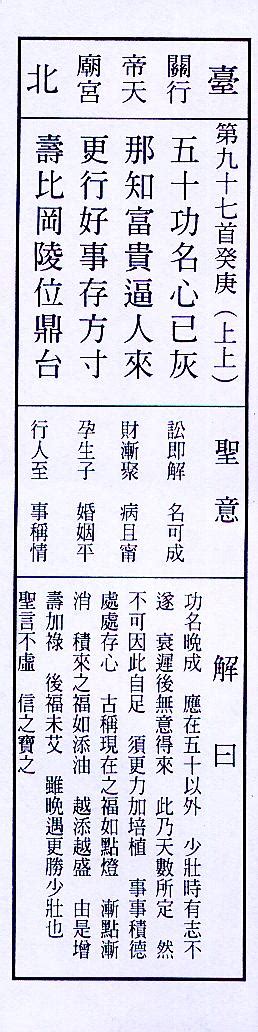 臺北
關行天宮
帝廟
第九十七首癸庚（上上）
五十功名心已灰
那知富貴逼人來
更行好事存方寸
壽比岡陵位鼎台
聖意
訟即解　名可成
財漸聚　病且甯
孕生子　婚姻平
行人至　事稱情
解曰
功名晚成　應在五十以外　少壯時有志不
遂　衰遲後無意得來　此乃天數所定　然
不可因此自足　須更力加培植　事事積德
處處存心　古稱現在之福如點燈　漸點漸
消　積來之福如添油　越添越盛　由是增
壽加祿　後福未艾　雖晚遇更勝少壯也
聖言不虛　信之寶之